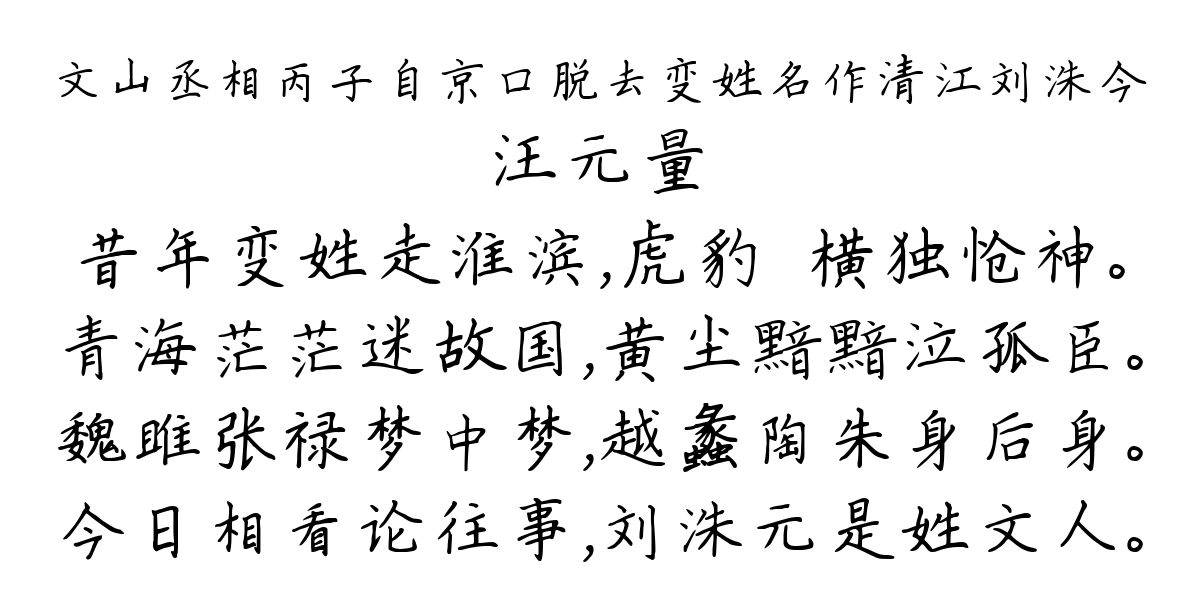 文山丞相丙子自京口脱去变姓名作清江刘洙今
汪元量
昔年变姓走淮滨,虎豹 横独怆神。
青海茫茫迷故国,黄尘黯黯泣孤臣。
魏雎张禄梦中梦,越蠡陶朱身后身。
今日相看论往事,刘洙元是姓文人。